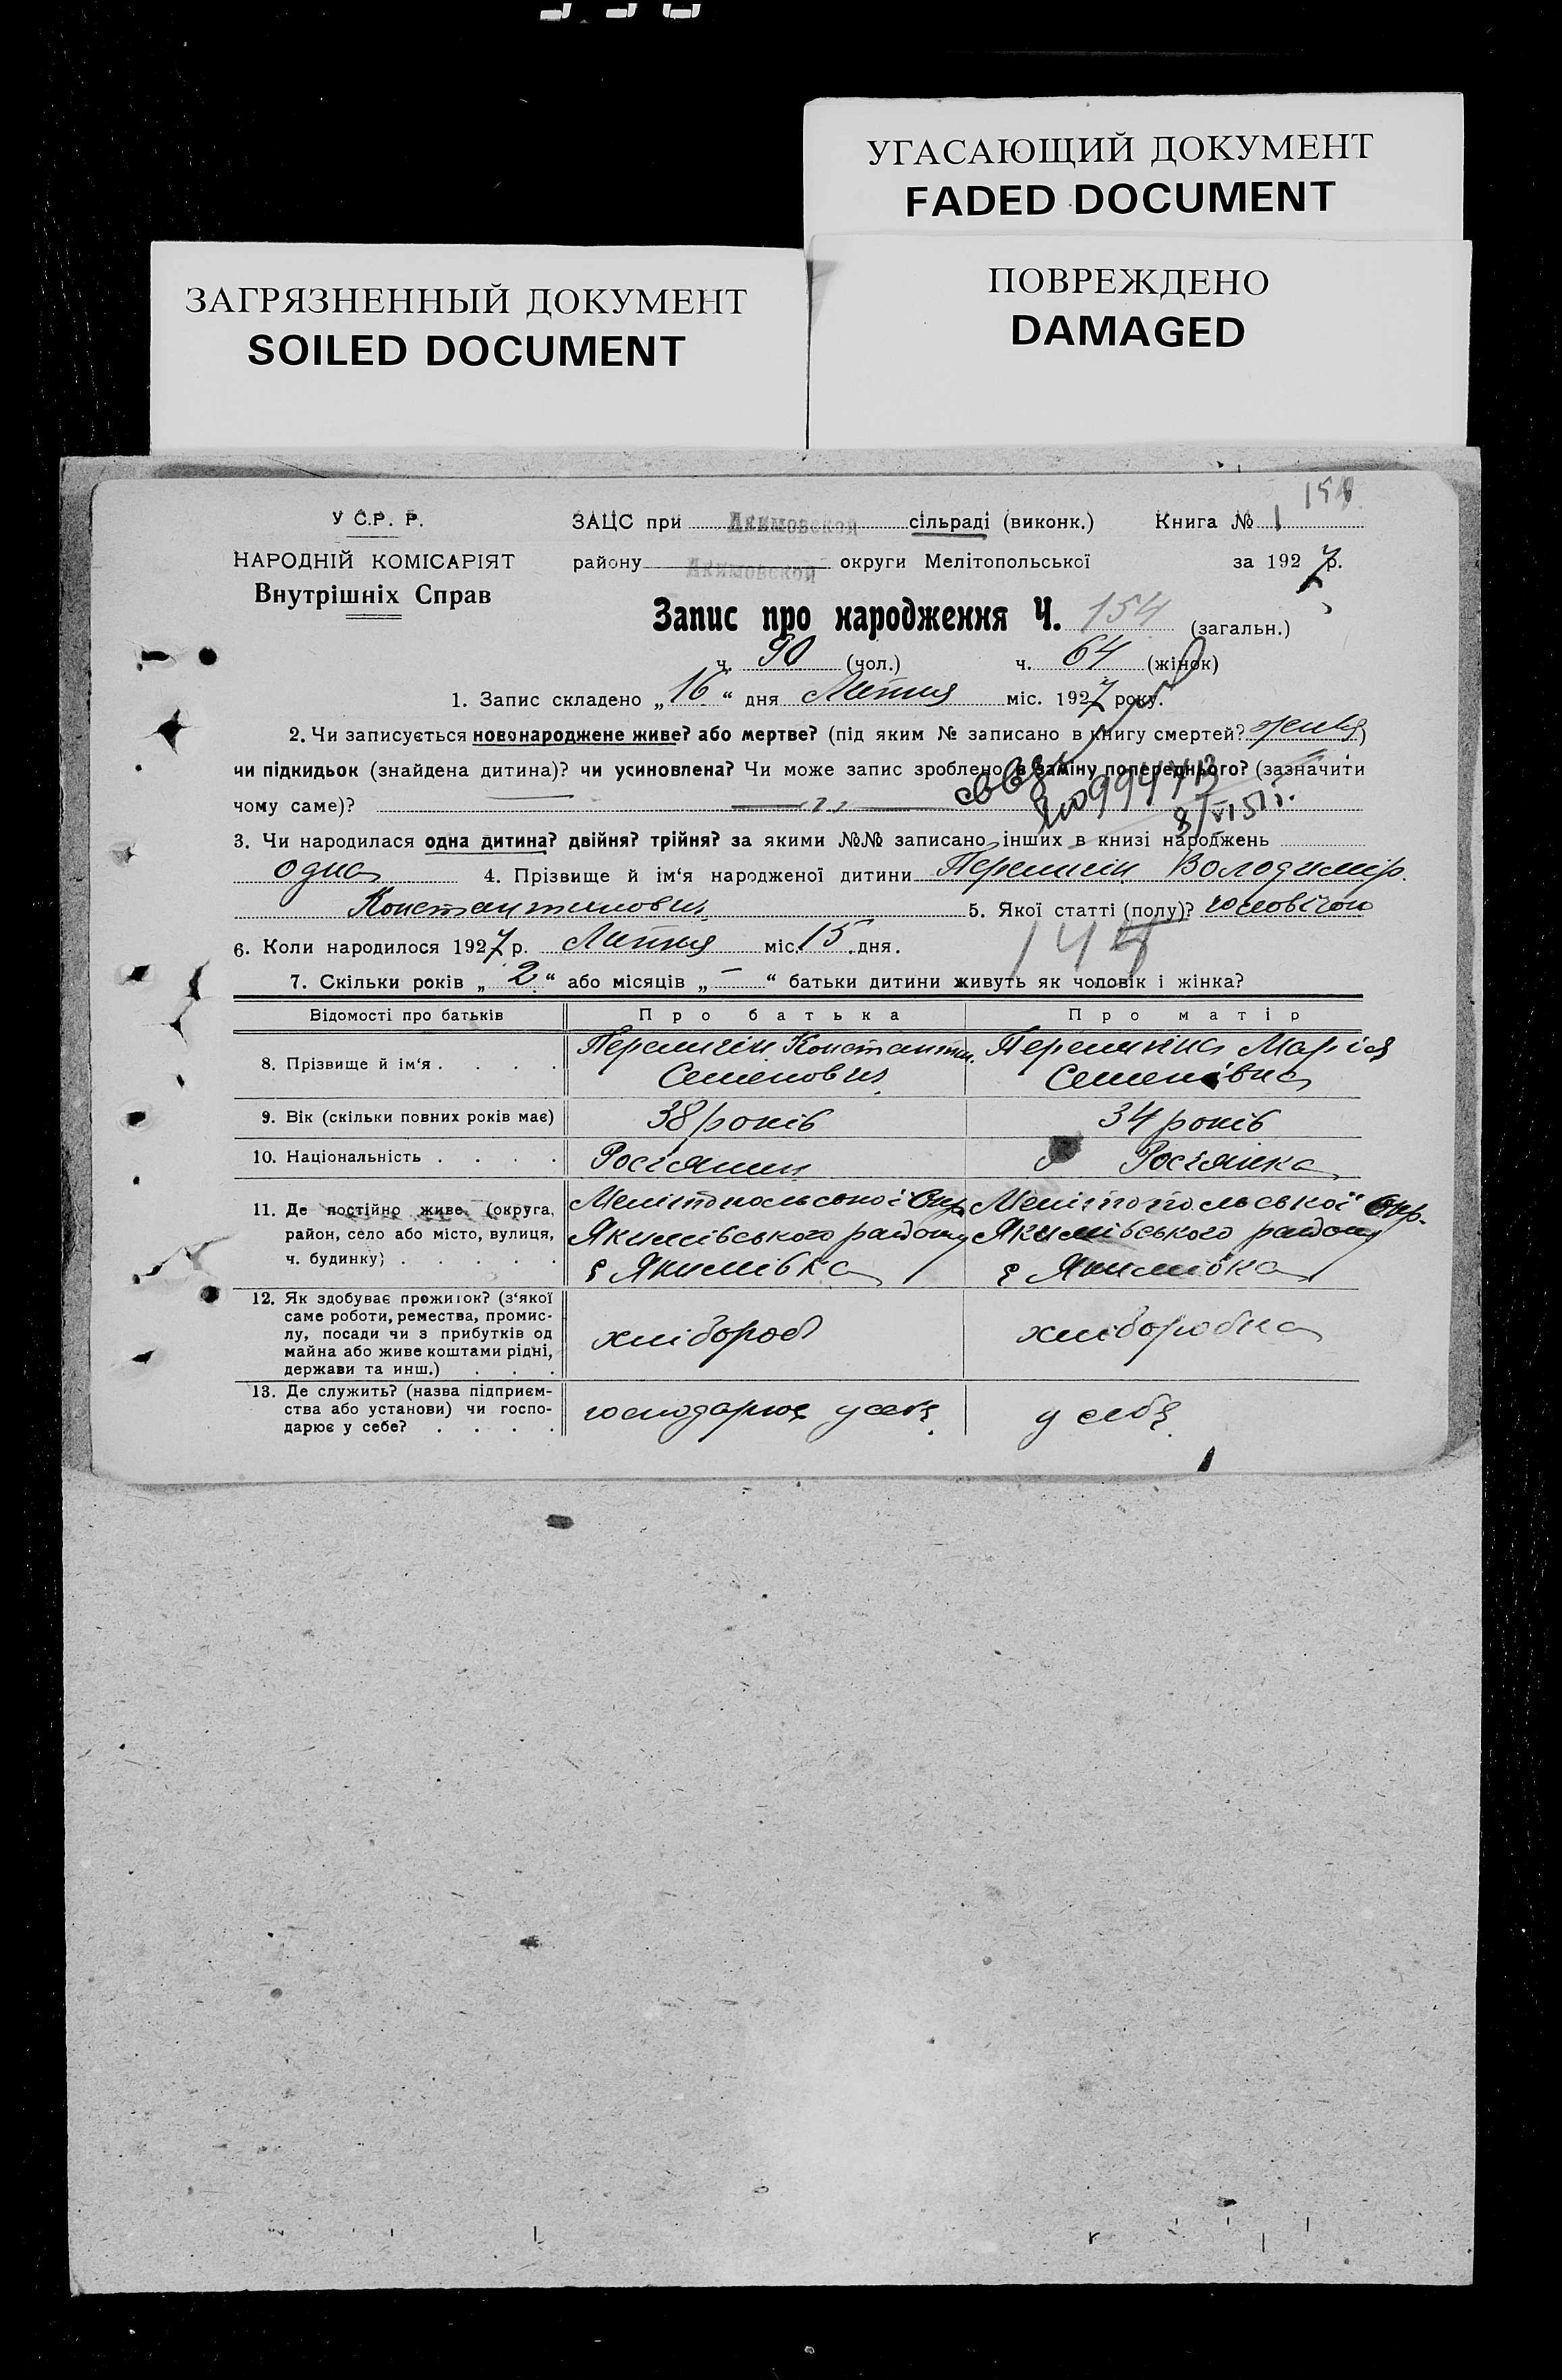 УГАСАЮЩИЙ ДОКУМЕНТ
FADED DOCUMENT
ЗАГРЯЗНЕННЫЙ ДОКУМЕНТ
SOILED DOCUMENT
ПОВРЕЖДЕНО
DAMAGED
У С.Р. Р.
НАРОДНІЙ КОМІСАРІЯТ
Внутрішніх Справ
ЗАЦС при Акимовской сільраді (виконк.) Книга № 1
району Акимовской округи Мелітопольської за 1927 р.
Запис про народження Ч. 154 (загальн.)
ч. 90 (чол.) ч. 64 (жінок)
1. Запис складено „16“ дня Липня міс. 1927 року.
2. Чи записується новонароджене живе? або мертве? (під яким № записано в книгу смертей? живе)
чи підкидьок (знайдена дитина)? чи усиновлена? Чи може запис зроблено в заміну попереднього? (зазначити
чому саме)?
3. Чи народилася одна дитина? двійня? трійня? за якими №№ записано інших в книзі народжень
одна 4. Прізвище й ім'я народженої дитини Володимір
Константинович 5. Якої статті (полу)?
6. Коли народилося 1927 р. Липня міс. 15 дня.
7. Скільки років „2“ або місяців „—“ батьки дитини живуть як чоловік і жінка?
Відомості про батьків Про батька Про матір
8. Прізвище й ім'я . . . . Константин Марія
Семенович Семенівна
9. Вік (скільки повних років має) 38 років 34 років
10. Національність . . . . Росіянин Росіянка
11. Де постійно живе (округа, Мелітопольської Окр. Мелітопольської Окр.
район, село або місто, вулиця, Якимівського району Якимівського району
ч. будинку) . . . . . с Якимівка с Якимівка
12. Як здобуває прожиток? (з'якої
саме роботи, ремества, промис-
лу, посади чи з прибутків од хлібороб хліборобка
майна або живе коштами рідні,
держави та инш.) . . .
13. Де служить? (назва підприєм-
ства або установи) чи госпо- господарює у себе у себе
дарює у себе? . . . .